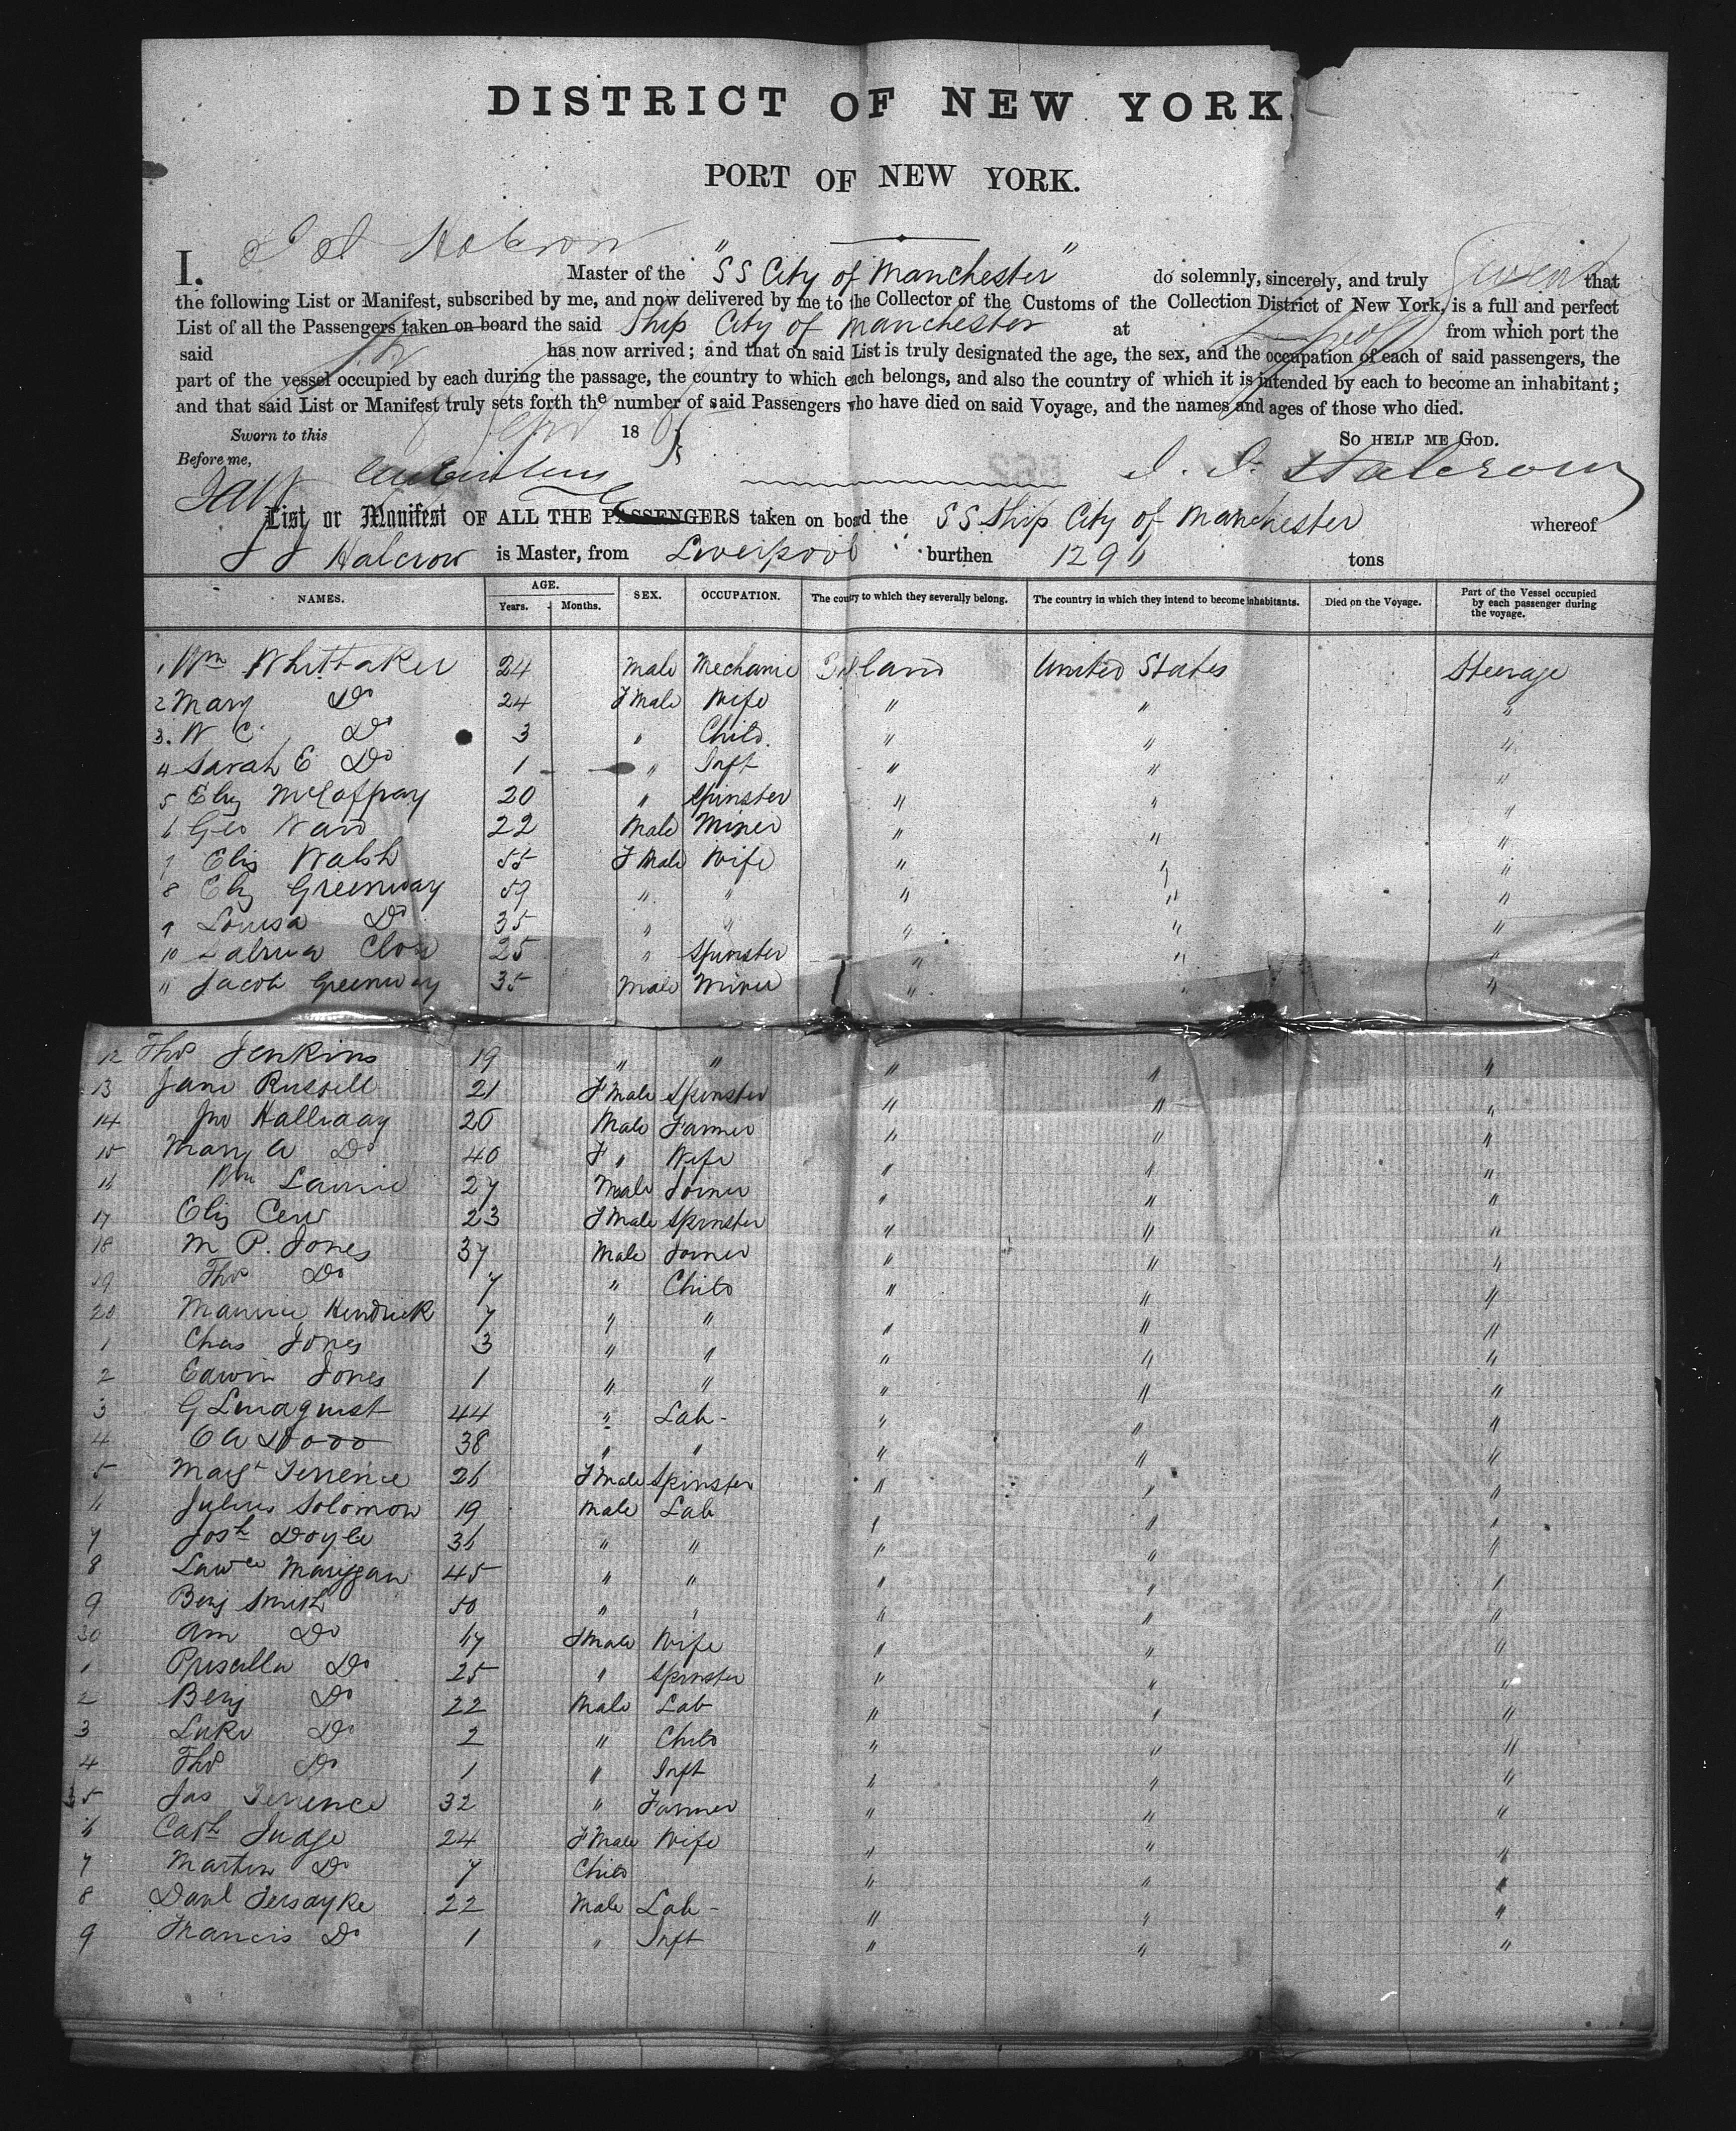 DISTRICT OF NEW YORK.
PORT OF NEW YORK.
I. Master of the "SS City of Manchester" do solemnly, sincerely, and truly that
the following List or Manifest, subscribed by me, and now delivered by me to the Collector of the Customs of the Collection District of New York, is a full and perfect
List of all the Passengers taken on board the said Ship City of Manchester at from which port the
said has now arrived; and that on said List is truly designated the age, the sex, and the occupation of each of said passengers, the
part of the vessel occupied by each during the passage, the country to which each belongs, and also the country of which it is intended by each to become an inhabitant;
and that said List or Manifest truly sets forth the number of said Passengers who have died on said Voyage, and the names and ages of those who died.
Sworn to this 18 SO HELP ME GOD.
Before me, Halcrow
List or Manifest OF ALL THE PASSENGERS taken on board the SS Ship City of Manchester whereof
J J Halcrow is Master, from Liverpool burthen 1296 tons
NAMES. AGE. Years. Months. SEX. OCCUPATION. The country to which they severally belong. The country in which they intend to become inhabitants. Died on the Voyage. Part of the Vessel occupied by each passenger during the voyage.
1 Wm Whittaker 24 Male Mechanic United States Steerage
2 Mary Do 24 FMale Wife " " "
3. W C. Do 3 " Child " " "
4 Sarah E Do 1 " Inft " " "
5 Eliz McCaffray 20 " Spinster " " "
6 Geo Ward 22 Male Miner " " "
7 Eliz Walsh 55 FMale Wife " " "
8 Eliz Greenway 59 " " " " "
9 Louisa Do 35 " " " " "
10 25 " Spinster " " "
11 Jacob Greenway 35 Male Miner " " "
12 Thos Jenkins 19 " " " " "
13 Jane Russell 21 FMale Spinster " " "
14 Jno Halliday 26 Male Farmer " " "
15 Mary A Do 40 F " Wife " " "
16 Wm Laurie 27 Male Joiner " " "
17 Eliz 23 FMale Spinster " " "
18 M P. Jones 37 Male Joiner " " "
19 Thos Do 7 " Child " " "
20 Kendrick 7 " " " " "
1 Chas Jones 3 " " " " "
2 Edwin Jones 1 " " " " "
3 G Lindquist 44 " Lab- " " "
4 38 " " " " "
5 Margt Terrence 26 FMale Spinster " " "
6 Julius Solomon 19 Male Lab " " "
7 Josh Doyle 36 " " " " "
8 Lawce 45 " " " " "
9 Benj Smith 50 " " " " "
30 Ann Do 47 FMale Wife " " "
1 Priscilla Do 25 " Spinster " " "
2 Benj Do 22 Male Lab " " "
3 Luke Do 2 " Child " " "
4 Thos Do 1 " Inft " " "
35 Jas Terrence 32 " Farmer " " "
6 Cath Judge 24 FMale Wife " " "
7 Martin Do 7 Child " " "
8 Danl 22 Male Lab- " " "
9 Francis Do 1 " Inft " " "